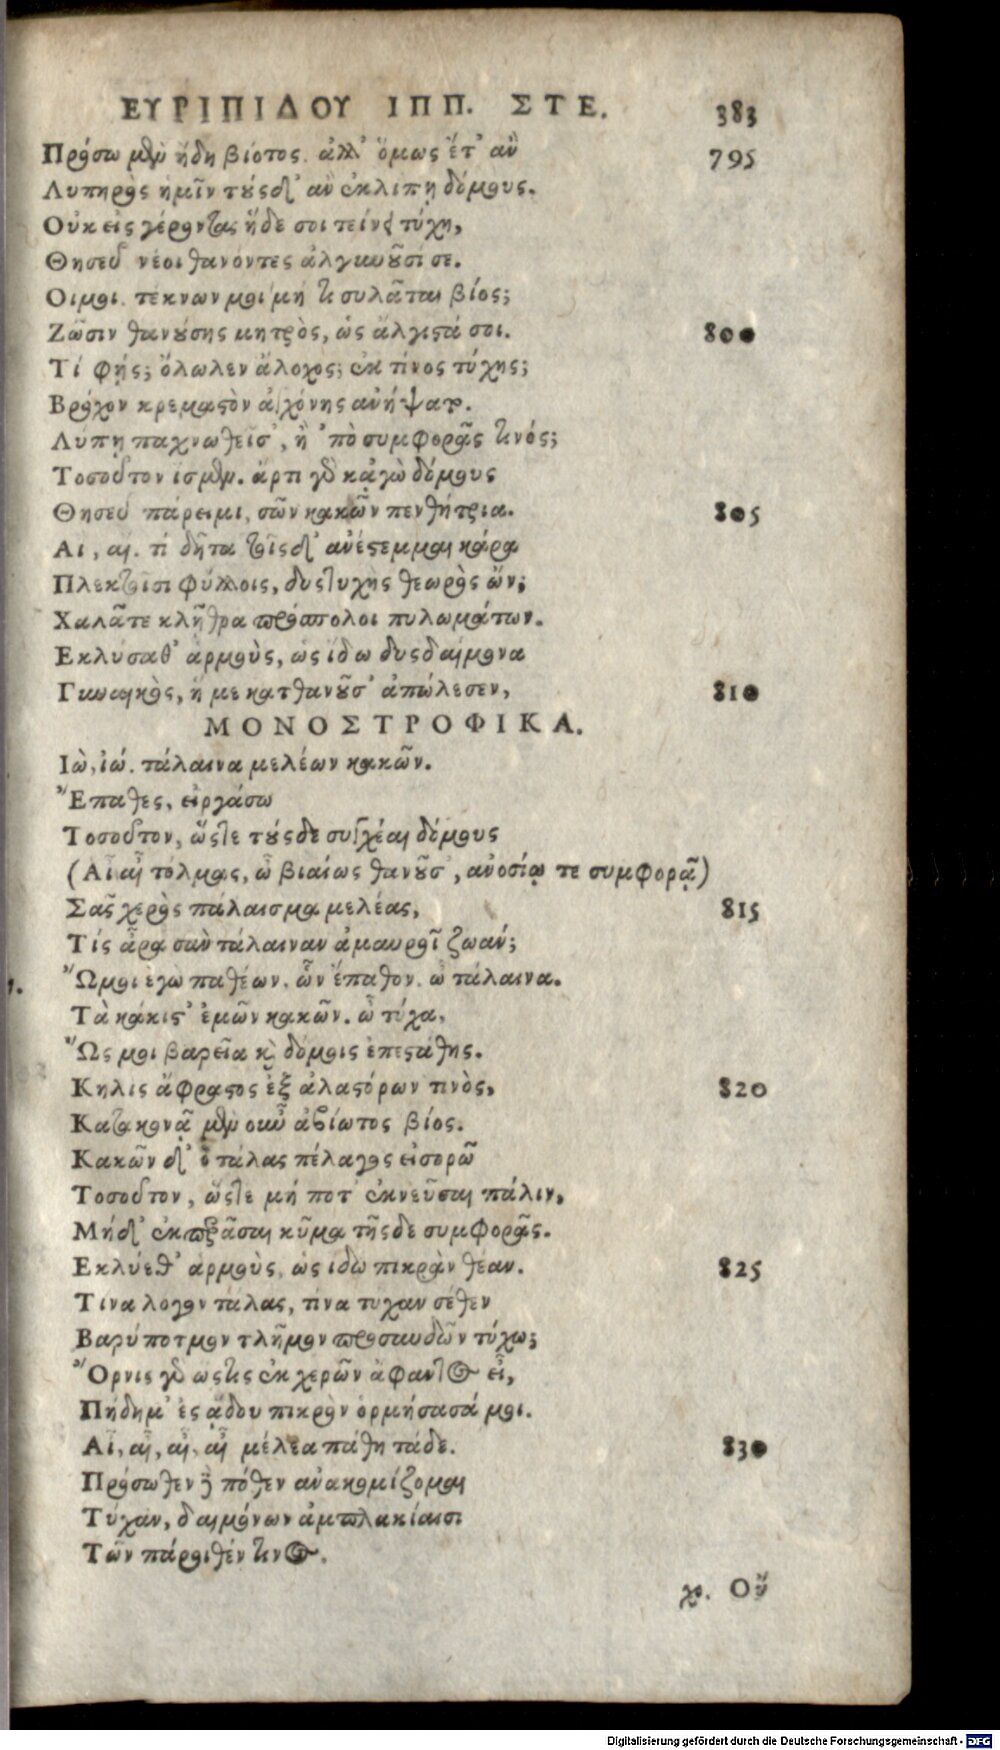 ΕΥΡΙΠΙΔΟΥ ΙΠΠ. ΣΤΕ. 383
Πρόσω μὲν ἤδη βίοτος. ἀλλ' ὅμως ἔτ' ἂν 795
Λυπηρὸς ἡμῖν τούσδ' ἂν ἐκλίπῃ δόμους.
Οὐκ εἰς γέροντας ἥδε σοι τείνει τύχη,
Θησεῦ νέοι θανόντες ἀλγυνοῦσί σε.
Οιμοι. τέκνων μοι μή τι συλᾶται βίος;
Ζῶσιν θανούσης μητρὸς, ὡς ἄλγιστά σοι. 800
Τί φῄς; ὄλωλεν ἄλοχος; ἐκ τίνος τύχης;
Βρόχον κρεμαστὸν ἀγχόνης ἀνήψατο.
Λύπῃ παχνωθεῖσ', ἢ 'πὸ συμφορᾶς τινός;
Τοσοῦτον ἴσμεν. ἄρτι γὰρ κᾀγὼ δόμους
Θησεῦ πάρειμι, σῶν κακῶν πενθήτρια. 805
Αι, αι. τί δῆτα τοῖσδ' ἀνέστεμμαι κάρα
Πλεκτοῖσι φύλλοις, δυστυχὴς θεωρὸς ὤν;
Χαλᾶτε κλῇθρα πρόσπολοι πυλωμάτων.
Εκλύσαθ' ἁρμοὺς, ὡς ἴδω δυσδαίμονα
Γυναικὸς, ἥ με κατθανοῦσ' ἀπώλεσεν, 810
ΜΟΝΟΣΤΡΟΦΙΚΑ.
Ιὼ, ἰώ. τάλαινα μελέων κακῶν.
Ἔπαθες, εἰργάσω
Τοσοῦτον, ὥστε τούσδε συγχέαι δόμους
(Αἶ αἶ τόλμας, ὦ βιαίως θανοῦσ', ἀνοσίῳ τε συμφορᾷ)
Σᾶς χερὸς πάλαισμα μελέας, 815
Τίς ἆρα σὰν τάλαιναν ἀμαυροῖ ζωάν;
Ὤμοι ἐγὼ παθέων. ὧν ἔπαθον. ὦ τάλαινα.
Τὰ κάκιστ' ἐμῶν κακῶν. ὦ τύχα,
Ὥς μοι βαρεῖα καὶ δόμοις ἐπεστάθης.
Κηλὶς ἄφραστος ἐξ ἀλαστόρων τινὸς, 820
Κατακονᾷ μὲν οὖν ἀβίωτος βίος.
Κακῶν δ' ὁ τάλας πέλαγος εἰσορῶ
Τοσοῦτον, ὥστε μή ποτ' ἐκνεῦσαι πάλιν,
Μήδ' ἐκπερᾶσαι κῦμα τῆσδε συμφορᾶς.
Εκλύεθ' ἁρμοὺς, ὡς ἴδω πικρὰν θέαν. 825
Τίνα λόγον τάλας, τίνα τύχαν σέθεν
Βαρύποτμον τλῆμον προσαυδῶν τύχω;
Ὄρνις γὰρ ὥς τις ἐκ χερῶν ἄφαντος εἶ,
Πήδημ' ἐς ᾅδου πικρὸν ὁρμήσασά μοι.
Αἶ, αἶ, αἶ, αἶ μέλεα πάθη τάδε. 830
Πρόσωθεν δὲ πόθεν ἀνακομίζομαι
Τύχαν, δαιμόνων ἀμπλακίαισι
Τῶν πάροιθέν τινος.
χο. Οὔ
Digitalisierung gefördert durch die Deutsche Forschungsgemeinschaft - DFG